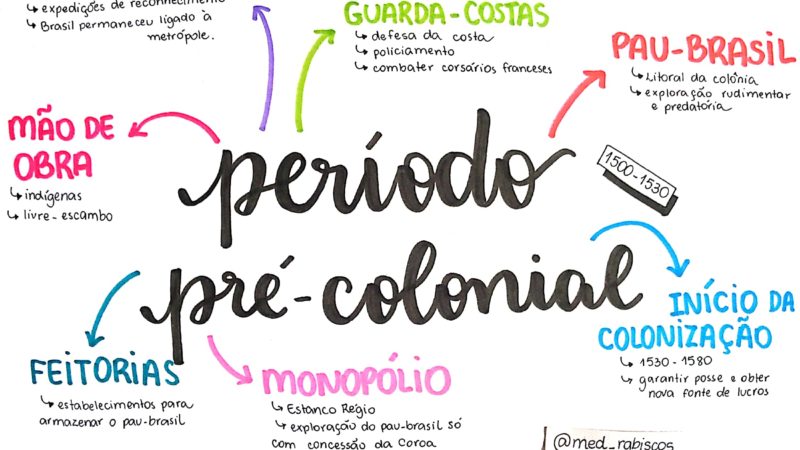 ↳ expedições de reconhecimento
↳ Brasil permaneceu ligado à
metrópole.
GUARDA-COSTAS
↳ defesa da costa
↳ policiamento
↳ combater corsários franceses
PAU-BRASIL
↳ Litoral da colônia
↳ exploração rudimentar
e predatória
MÃO DE
OBRA
↳ indígenas
↳ livre-escambo
período
1500-1530
pré-colonial
INÍCIO DA
COLONIZAÇÃO
↳ 1530-1580
↳ garantir posse e obter
nova fonte de lucros
FEITORIAS
↳ estabelecimentos para
armazenar o pau-brasil
MONOPÓLIO
↳ Estanco Régio
↳ exploração do pau-brasil só
com concessão da Coroa
@med_rabiscos